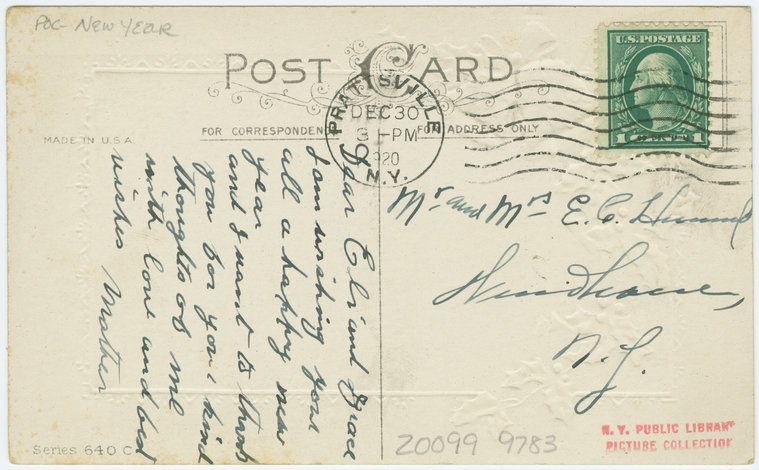 POC - NEW YEAR
POST CARD
U.S. POSTAGE
1 CENT 1
PRATTSVILLE
DEC 30
3 - PM
1920
N.Y.
FOR CORRESPONDENCE
FOR ADDRESS ONLY
MADE IN U.S.A.
Dear Eli and Grace
I am wishing you
all a happy new
year
and I want to thank
you for your kind
thoughts of me
with love and best
wishes Mother
Mr and Mrs E. C.
N.Y.
Series 640 C
20099 9783
N.Y. PUBLIC LIBRARY
PICTURE COLLECTION